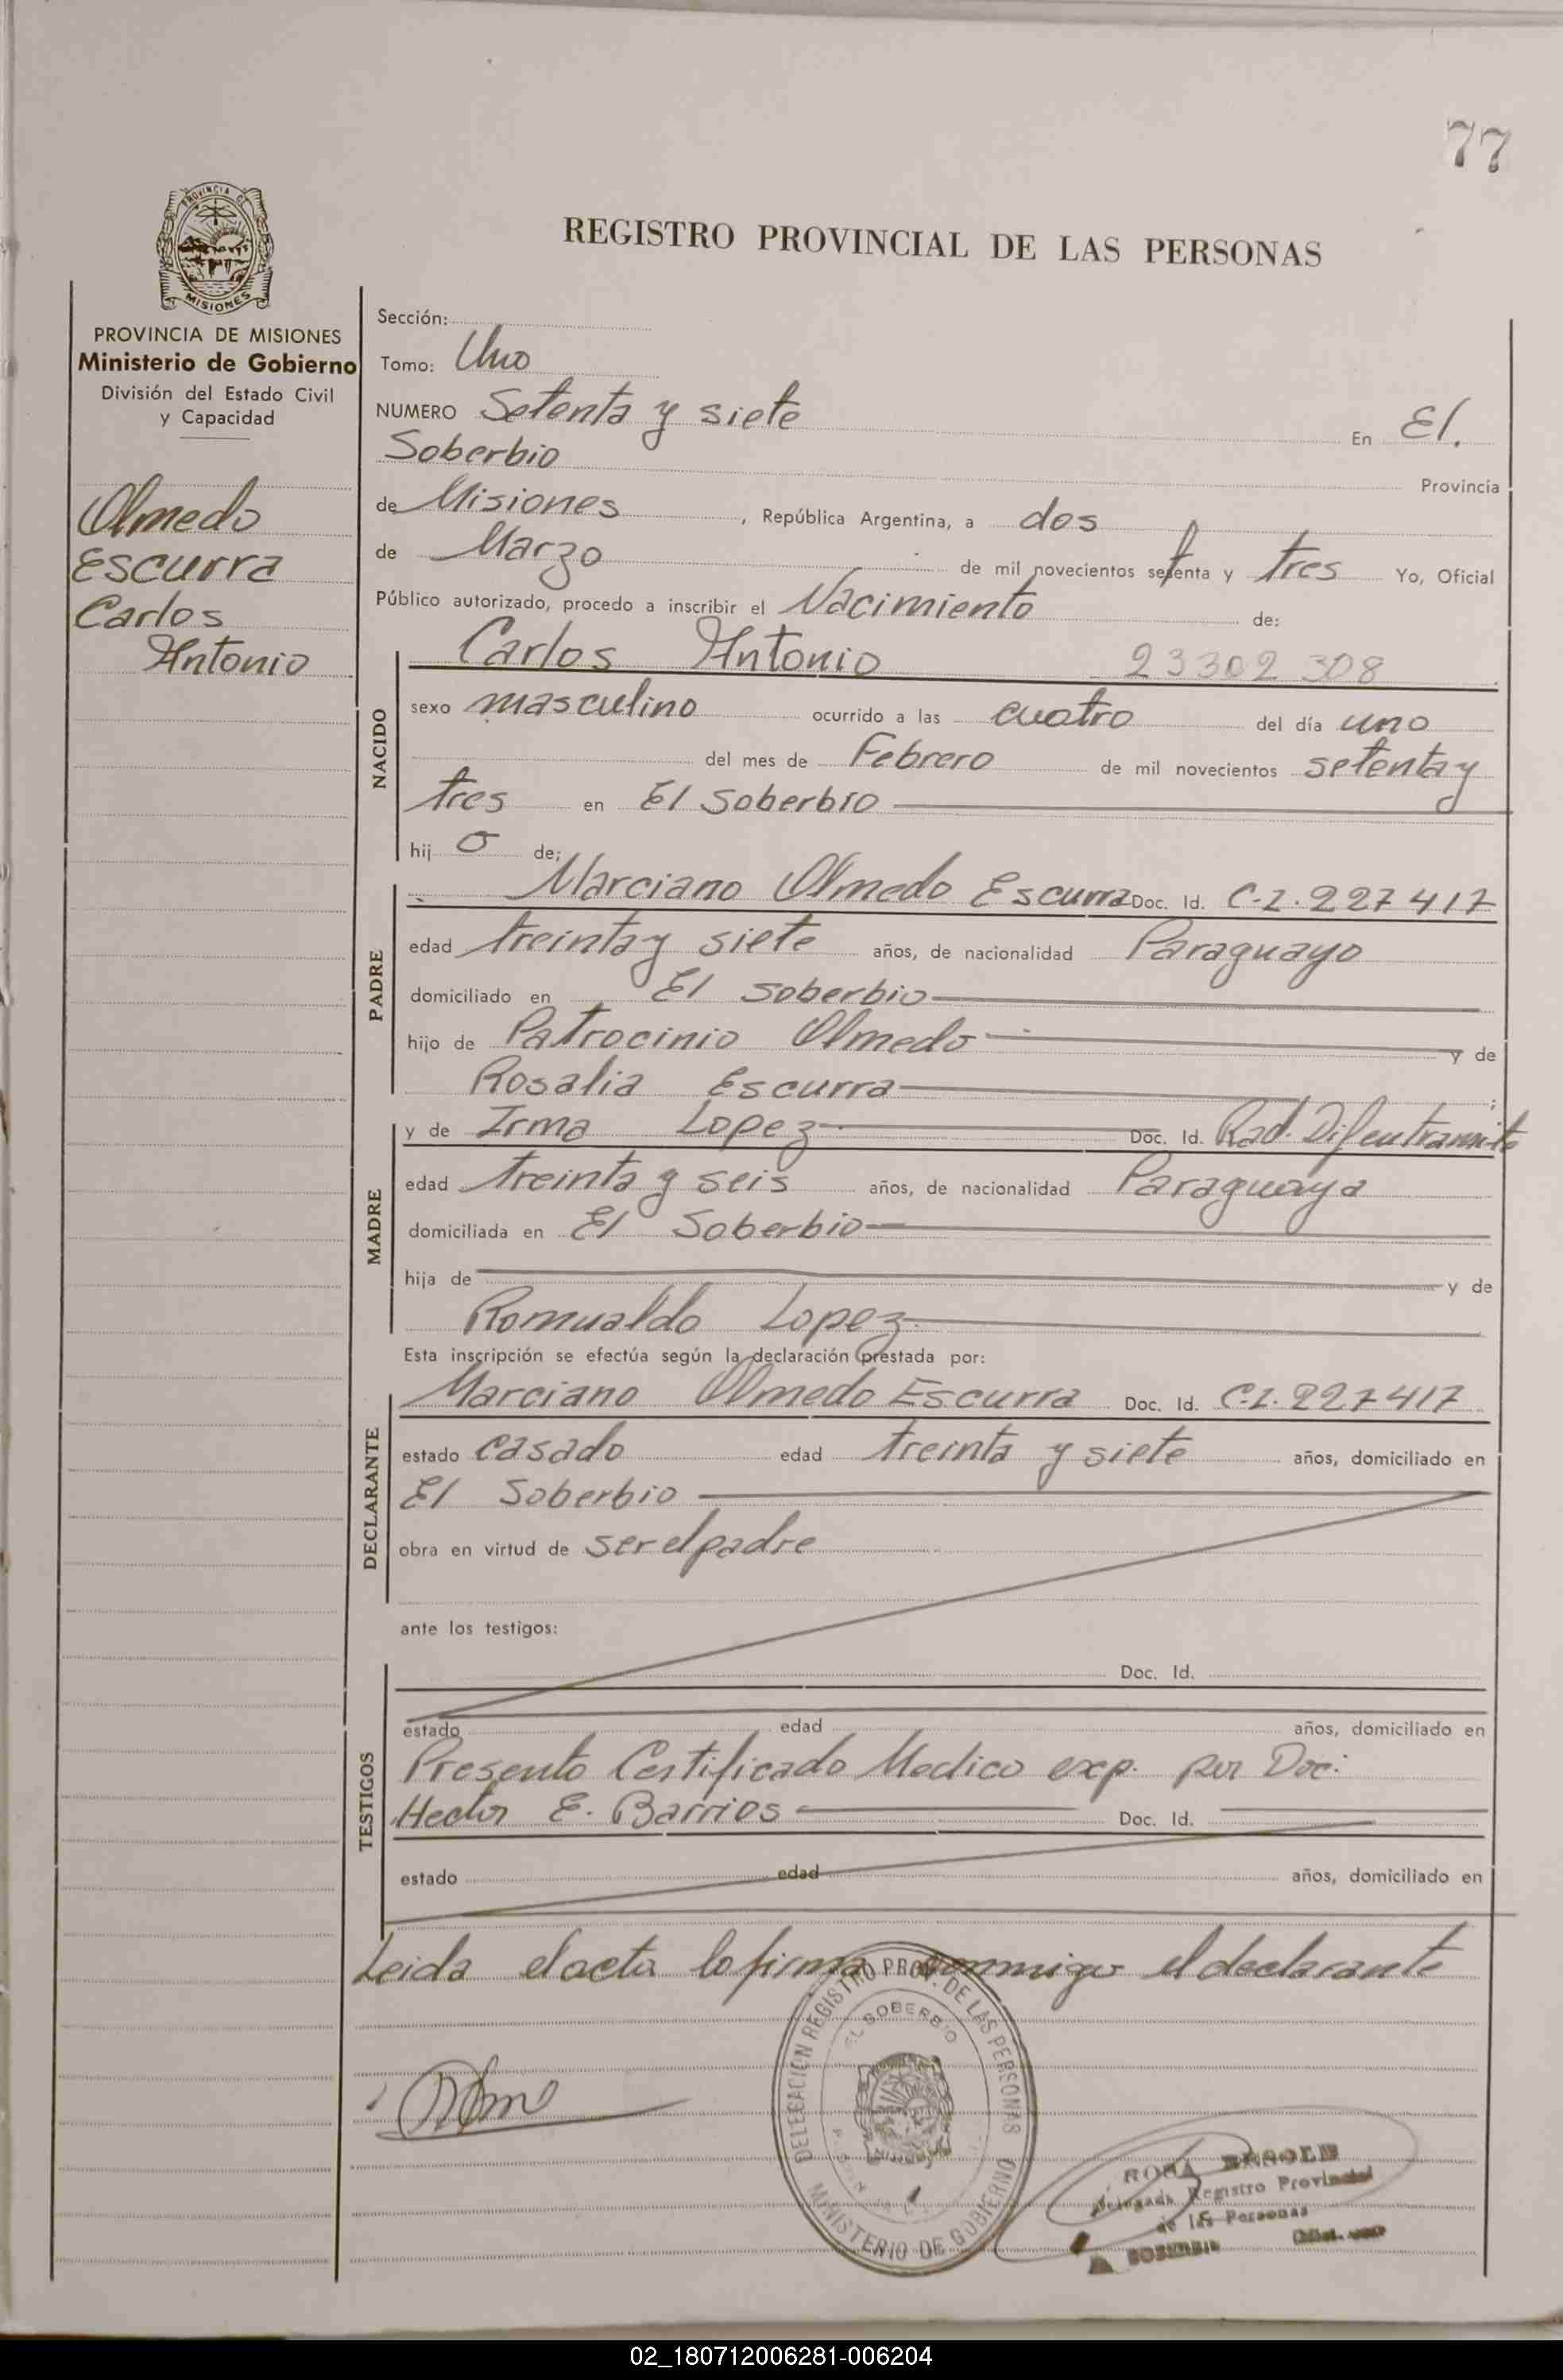 77
PROVINCIA DE
MISIONES
REGISTRO PROVINCIAL DE LAS PERSONAS
PROVINCIA DE MISIONES
Ministerio de Gobierno
División del Estado Civil
y Capacidad
Olmedo
Escurra
Carlos
Antonio
Sección:
Tomo: Uno
NUMERO Setenta y siete En El.
Soberbio Provincia
de Misiones, República Argentina, a dos
de Marzo de mil novecientos setenta y tres Yo, Oficial
Público autorizado, procedo a inscribir el Nacimiento de:
NACIDO
Carlos Antonio 23302 308
sexo masculino ocurrido a las cuatro del día uno
del mes de Febrero de mil novecientos setenta y
tres en El Soberbio
hij o de:
PADRE
Marciano Olmedo Escurra Doc. Id. C.I. 227417
edad treinta y siete años, de nacionalidad Paraguayo
domiciliado en El Soberbio
hijo de Patrocinio Olmedo y de
Rosalia Escurra ;
MADRE
y de Irma Lopez Doc. Id. Rad. Dif en tramite
edad treinta y seis años, de nacionalidad Paraguaya
domiciliada en El Soberbio
hija de y de
Romualdo Lopez
Esta inscripción se efectúa según la declaración prestada por:
DECLARANTE
Marciano Olmedo Escurra Doc. Id. C.I. 227417
estado casado edad treinta y siete años, domiciliado en
El Soberbio
obra en virtud de ser el padre
ante los testigos:
TESTIGOS
Doc. Id.
estado edad años, domiciliado en
Presento Certificado Medico exp. por Doc:
Hector E. Barrios Doc. Id.
estado edad años, domiciliado en
Leida el acta lo firma conmigo el declarante
DELEGACION REGISTRO PROV. DE LAS PERSONAS
EL SOBERBIO
MINISTERIO DE GOBIERNO
ROSA
Delegada Registro Provincial
de las Personas
SOBERBIO
02_180712006281-006204